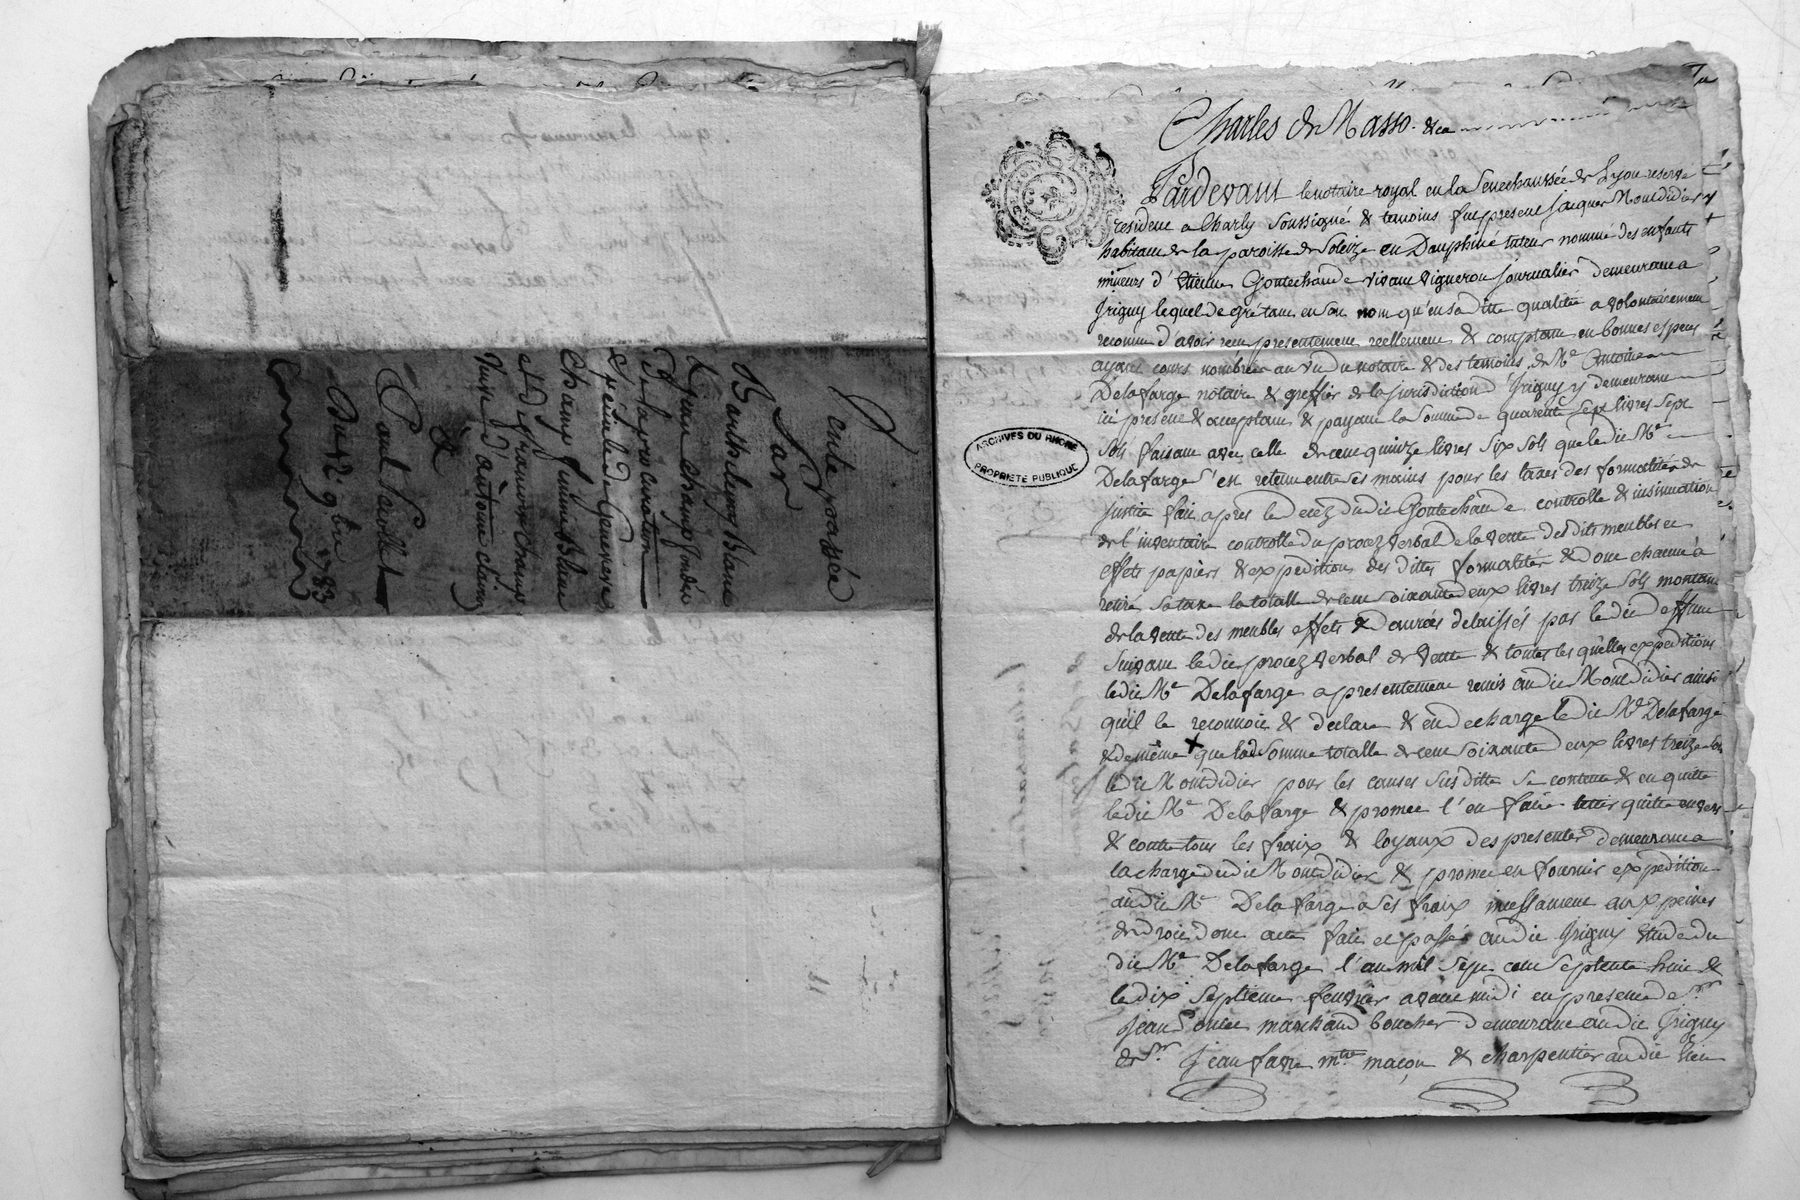 Vente passée
Par
Barthelemy Blanc
Jean champ fondé
De la procuration
Spécialle de Genevieve
champ femme Blanc
et de françoise champ
veuve d'antoine clair
à
Paul
Du 12. 9bre 1783
Charles De Masso. &ca
Pardevant le notaire royal en la Senechaussée de Lyon reservé
resident a Charly soussigné & temoins fut present Jacques Montdidier
habitant de la paroisse de Solaize en Dauphiné tuteur nommé des enfants
mineurs d'Etienne Gontechande vivant vigneron journalier demeurant a
Irigny lequel de gré tant en son nom qu'en sa ditte qualitée a volontairement
reconnu d'avoir reçu presentement reellement & comptant en bonnes especes
ayant cours nombrée au vu du notaire & des temoins, de Me Antoine
Delafarge notaire & greffier de la jurisdiction d'Irigny y demeurant
ici present & acceptant & payant la somme de quarente sept livres sept
sols faisant avec celle de cent quinze livres six sols que ledit Me
Delafarge s'est retenu entre ses mains pour les taxes des formalités de
justice fait apres le decez dudit Gontechande controlle & insinuation
de l'inventaire controlle du procez verbal de la vente desdits meubles et
effets papiers & expeditions des dittes formalités & dont chacun a
retiré sa taxe la totalle de cent soixante deux livres treize sols montant
de la vente des meubles effets & danrées delaissés par ledit deffunt
suivant ledit procez verbal de vente & toutes lesquelles expeditions
ledit Me Delafarge a presentement remis audit Montdidier ainsi
quil le reconnoit & declare & en decharge ledit Me Delafarge
& de même que lad somme totalle de cent soixante deux livres treize sols
ledit Montdidier pour les causes susditte se contente & en quitte
ledit Me Delafarge & promet l'en faire tenir quitte envers
& contre tous les fraix & loyaux des presentes demeurant a
la charge dudit Montdidier & promet en fournir expedition
audit Me Delafarge a ses fraix incessament aux peines
de droit dont acte fait et passé audit Irigny etude du
dit Me Delafarge l'an mil sept cent septente huit &
le dix septieme fevrier avant midi en presence de Sr
Jean marchand boucher demeurant audit Irigny
& Sr Jean favre mtre maçon & charpentier audit lieu
ARCHIVES DU RHONE
PROPRIETE PUBLIQUE